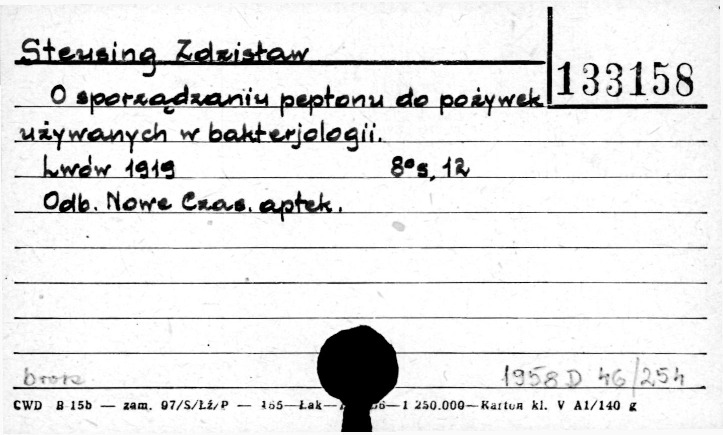 Steusing Zdzisław
133158
O sporządzaniu peptonu do pożywek
używanych w bakterjologii.
Lwów 1919 8°s, 12
Odb. Nowe Czas. aptek.
brosz.
1958 D 46/254
CWD B 15b — zam. 97/S/Łź/P — 165—Łak— —1 250.000—Karton kl. V A1/140 g